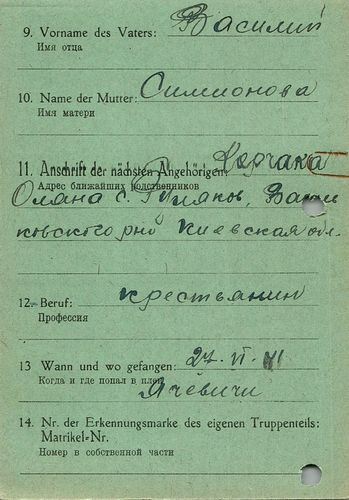 9. Vorname des Vaters: Василий
Имя отца
10. Name der Mutter: Симионова
Имя матери
11. Anschrift der nächsten Angehörigen: Корчака
Адрес ближайших родственников
Оляна с.
ковского рн Киевская обл.
12. Beruf: крестьянин
Профессия
13 Wann und wo gefangen: 27. VI. 41
Когда и где попал в плен
Ячевичи
14. Nr. der Erkennungsmarke des eigenen Truppenteils:
Matrikel-Nr.
Номер в собственной части